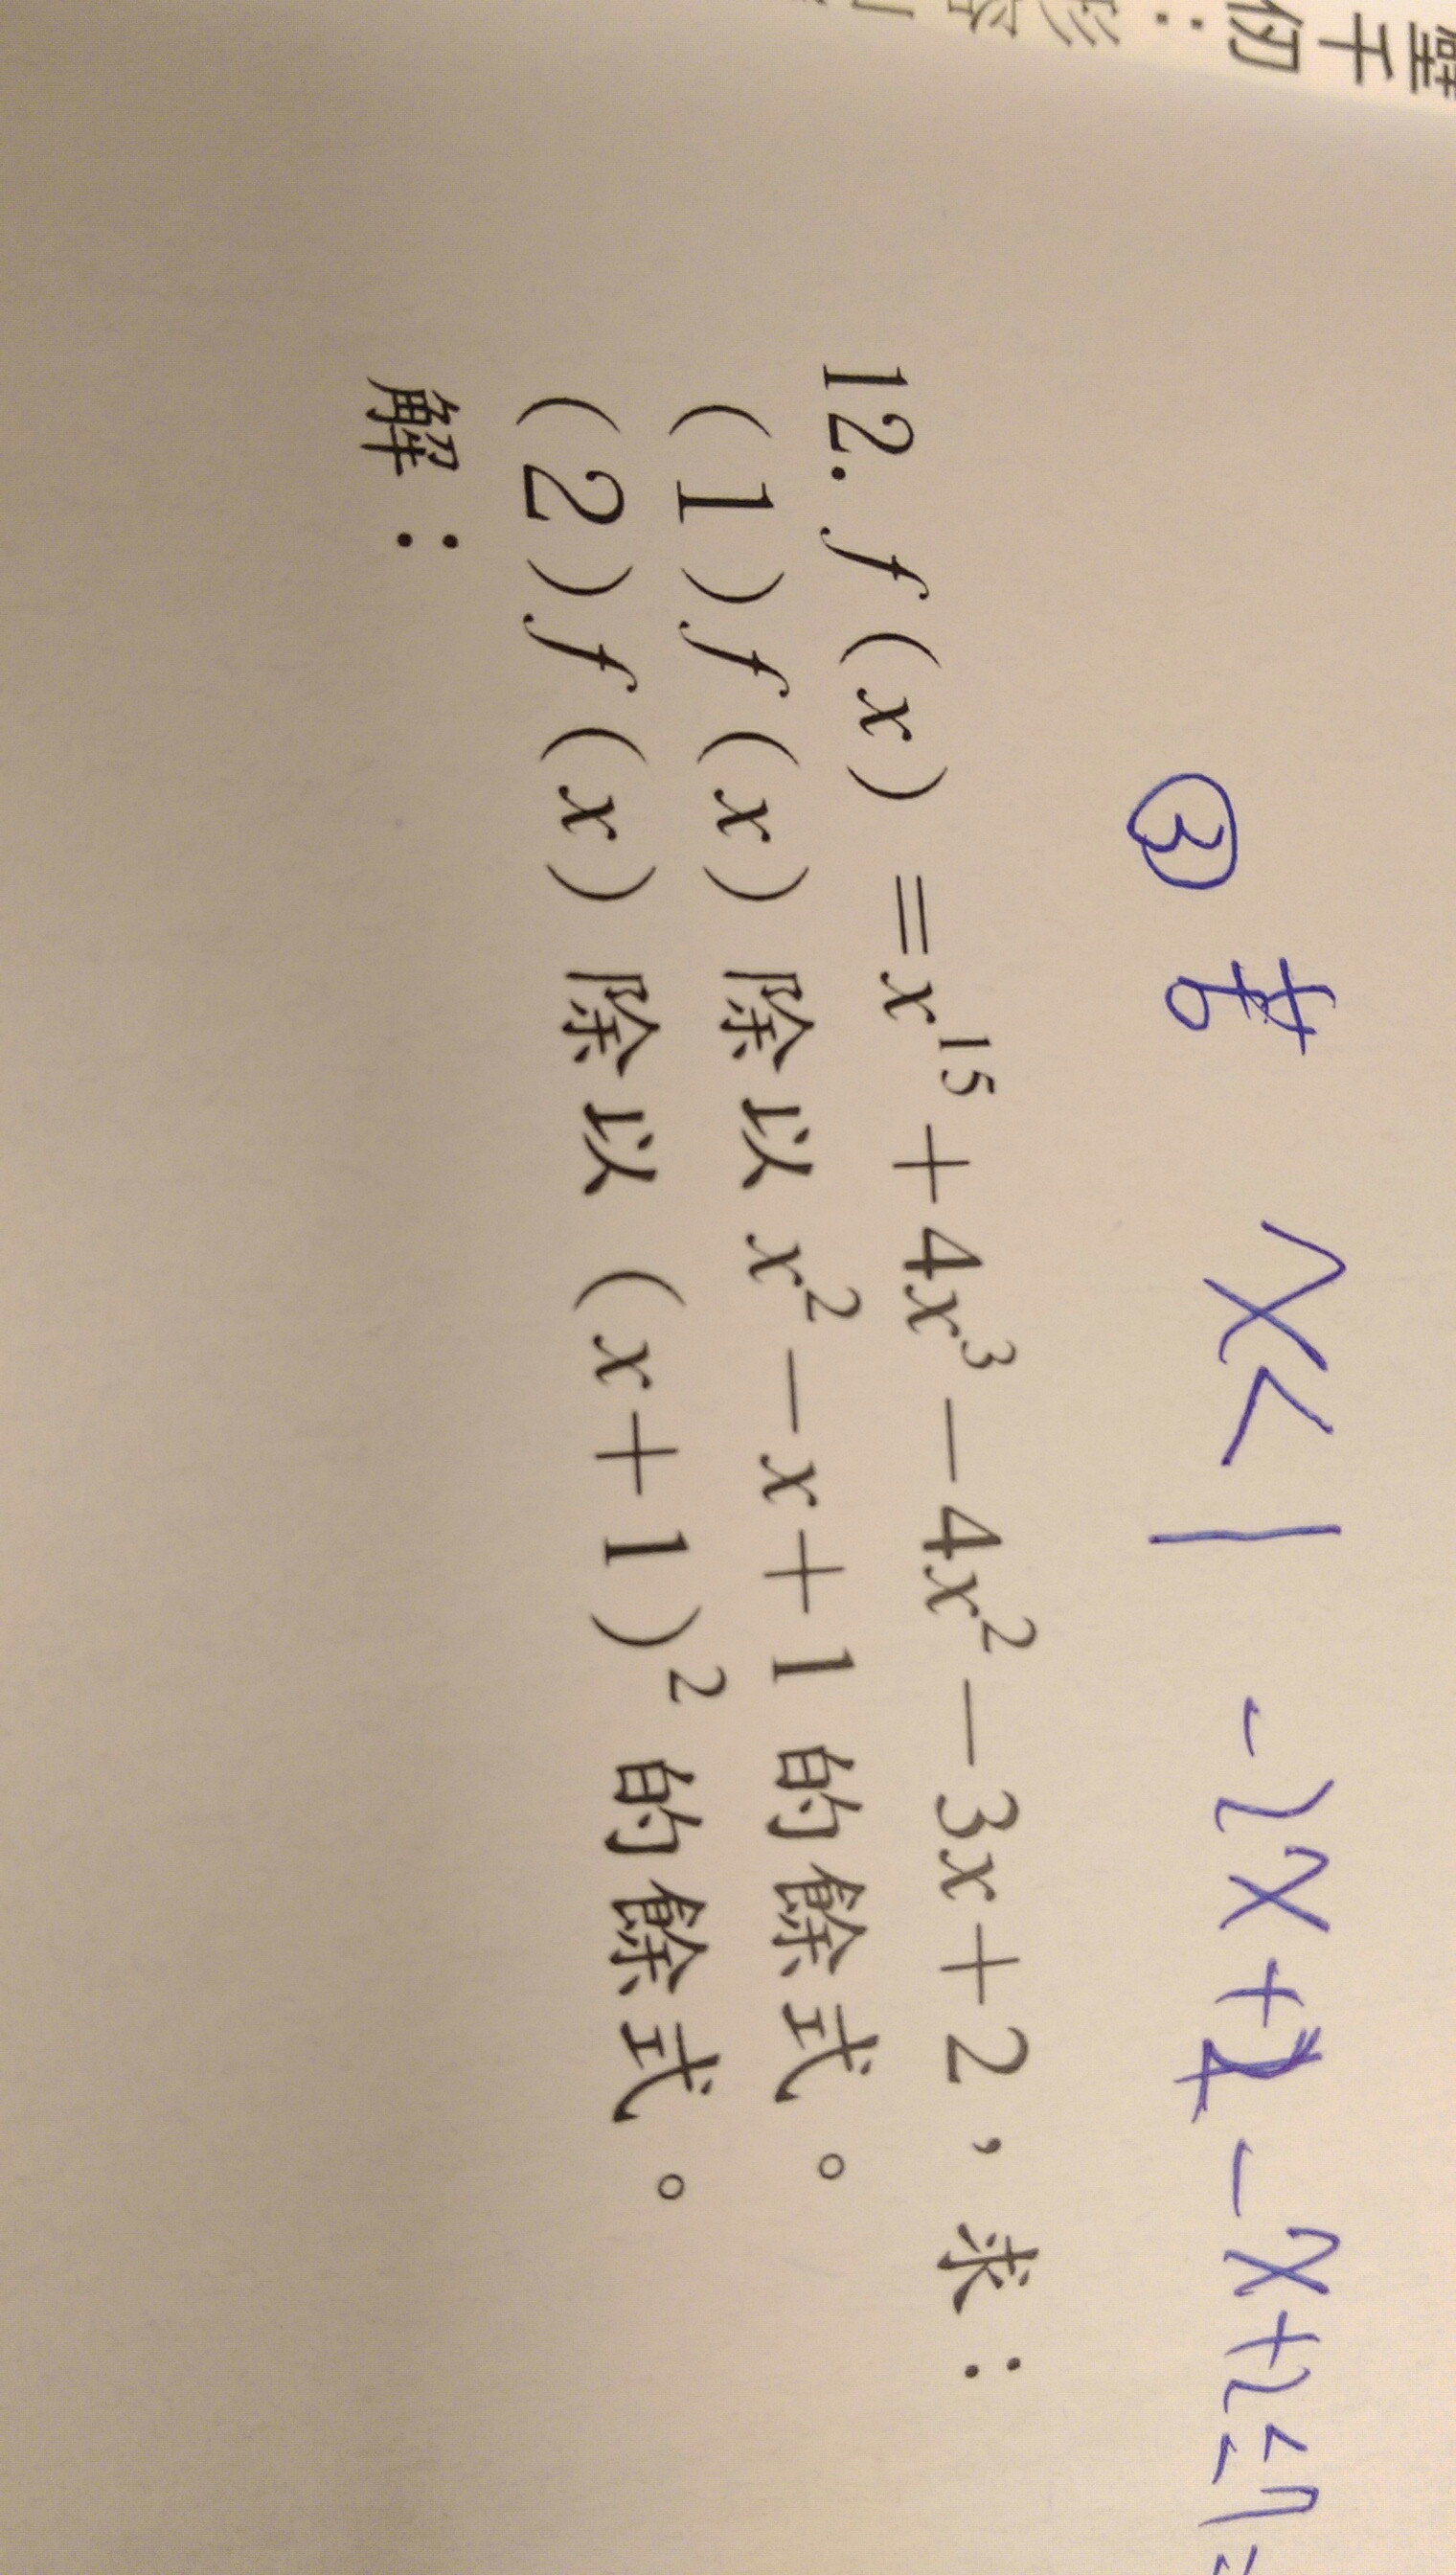 ③ 若 x<1 -2x+1-x+2≤7
12. f(x)=x¹⁵+4x³-4x²-3x+2，求：
(1)f(x)除以x²-x+1的餘式。
(2)f(x)除以(x+1)²的餘式。
解：